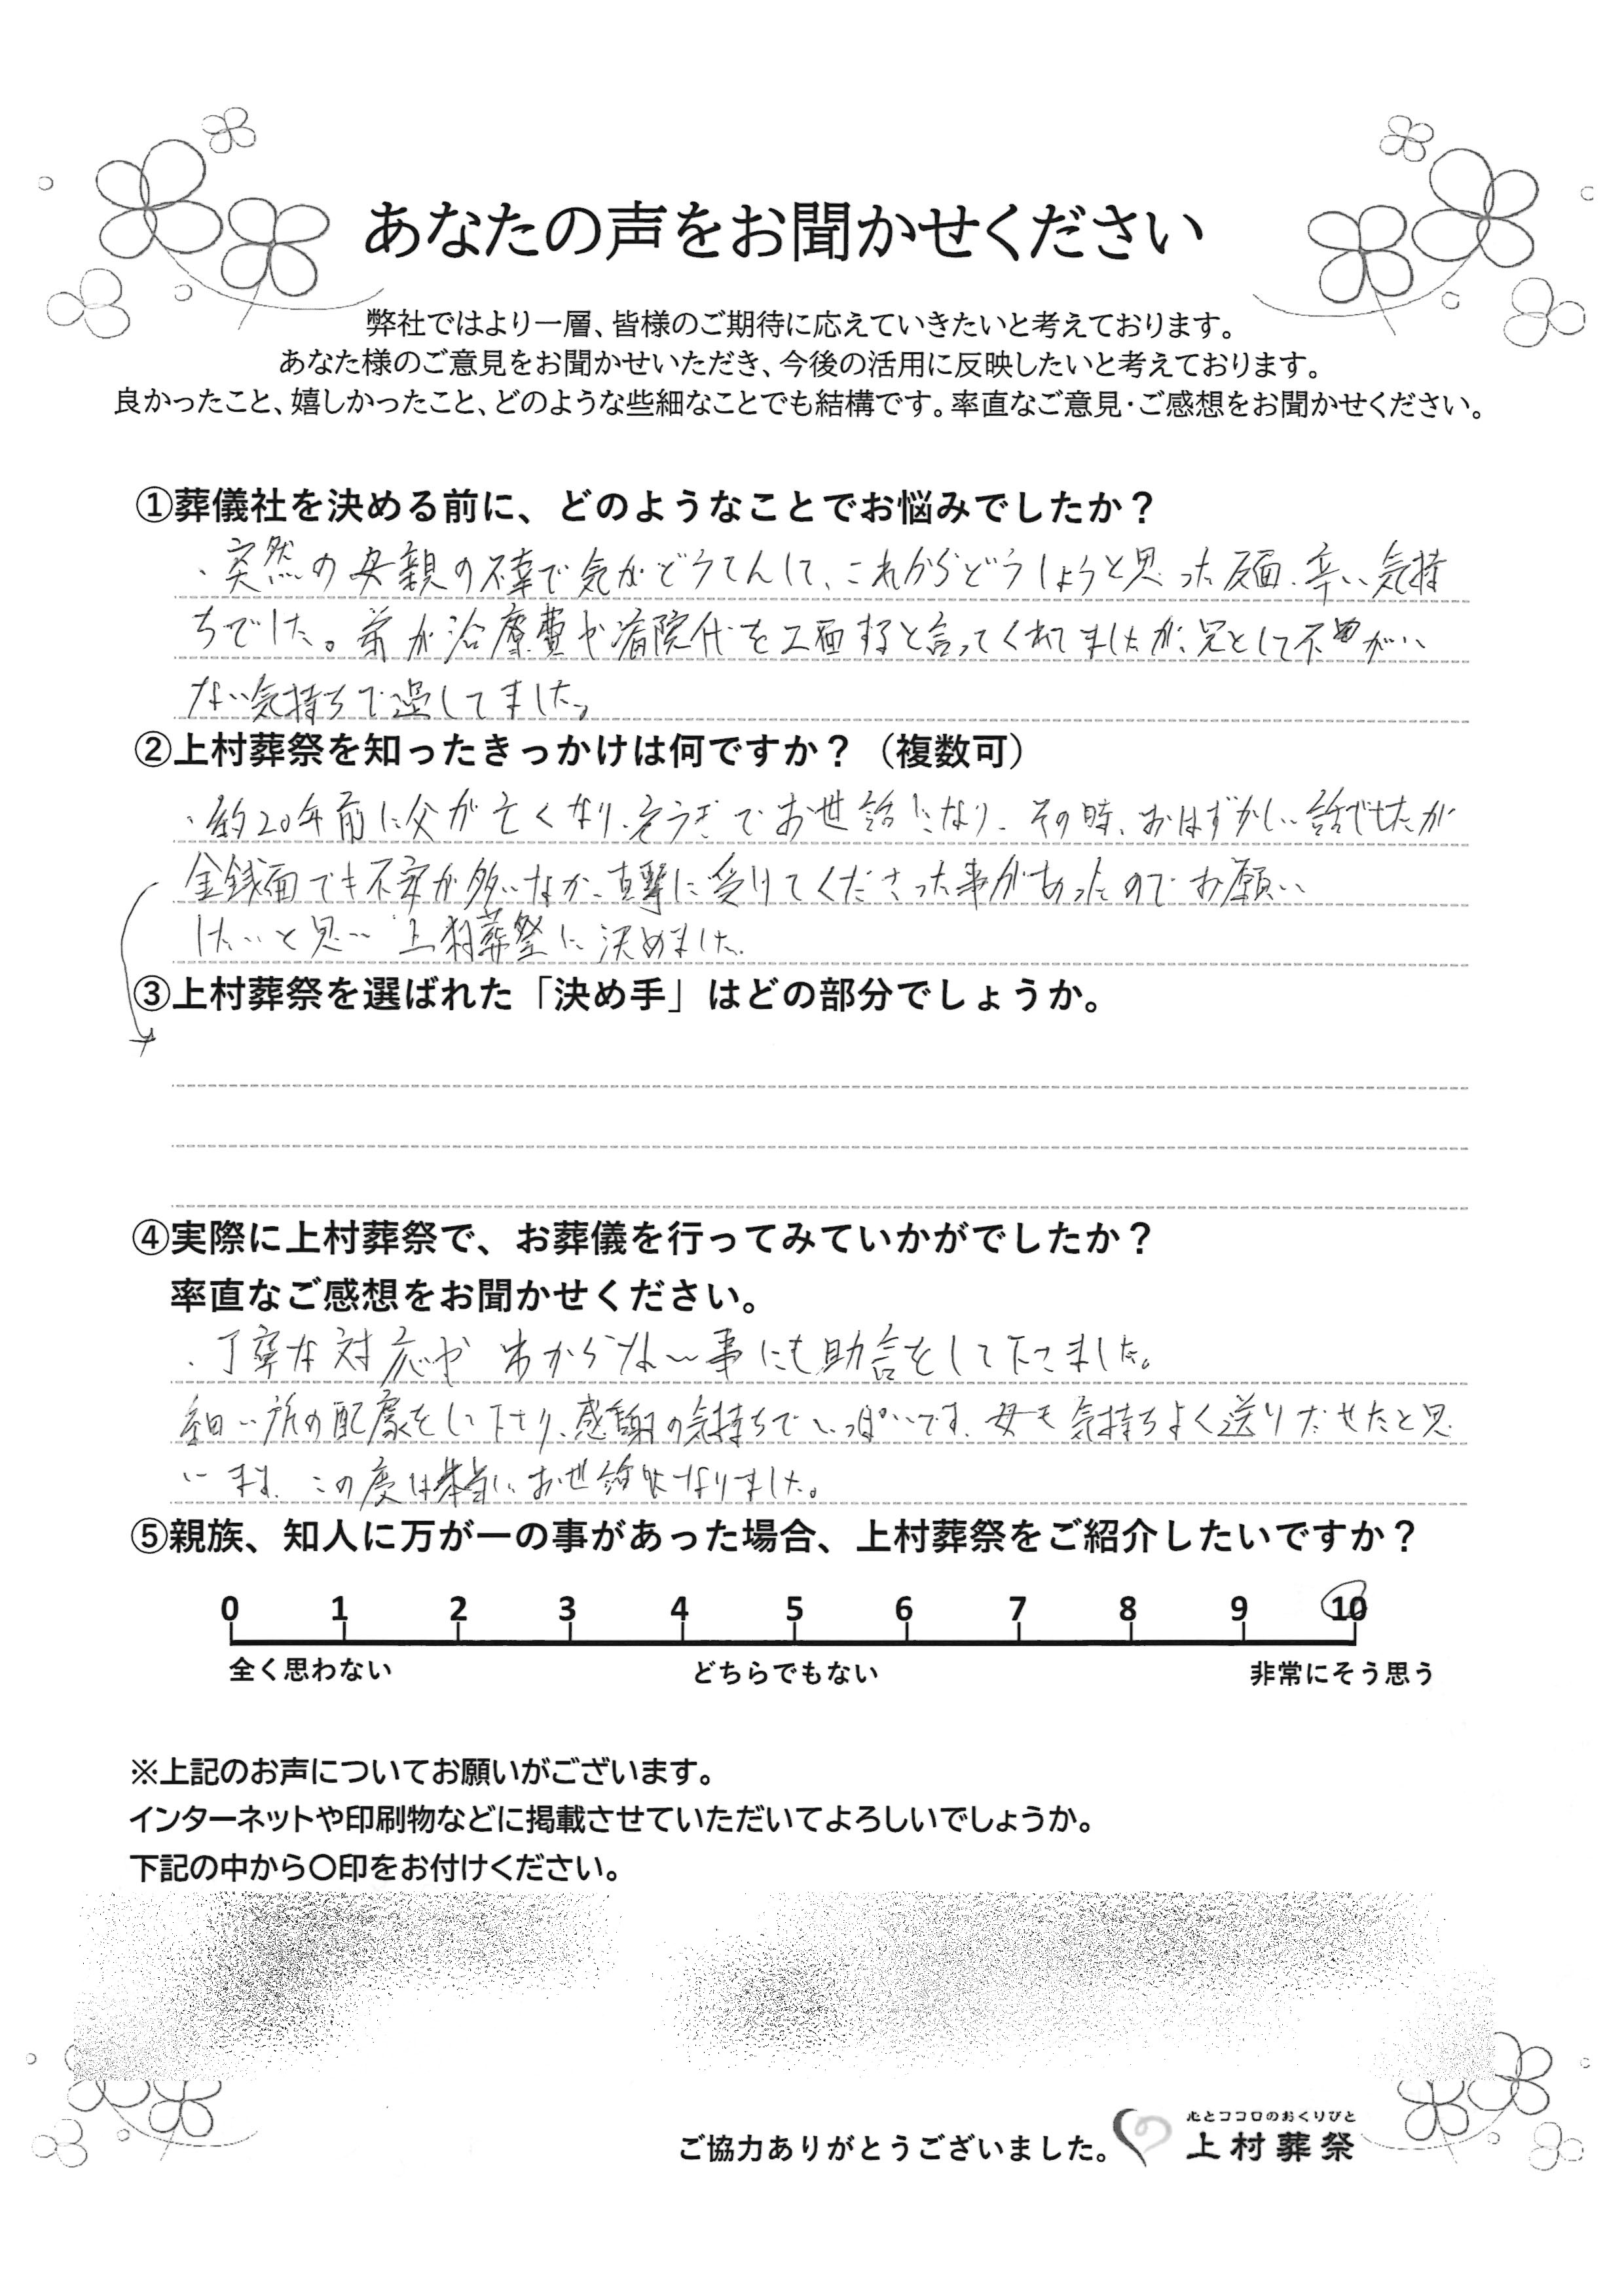 あなたの声をお聞かせください
弊社ではより一層、皆様のご期待に応えていきたいと考えております。
あなた様のご意見をお聞かせいただき、今後の活用に反映したいと考えております。
良かったこと、嬉しかったこと、どのような些細なことでも結構です。率直なご意見・ご感想をお聞かせください。
①葬儀社を決める前に、どのようなことでお悩みでしたか？
・突然の母親の不幸で気がどうてんして、これからどうしようと思った反面、辛い気持
ちでした。弟が治療費や病院代を工面すると言ってくれてましたが、兄として不甲がい
ない気持ちで過してました。
②上村葬祭を知ったきっかけは何ですか？（複数可）
・約20年前に父が亡くなり、そうぎでお世話になり、その時、おはずかしい話でしたが
金銭面でも不安が多いなか、真摯に受けてくださった事があったのでお願い
したいと思い 上村葬祭に決めました。
③上村葬祭を選ばれた「決め手」はどの部分でしょうか。
④実際に上村葬祭で、お葬儀を行ってみていかがでしたか？
率直なご感想をお聞かせください。
・丁寧な対応や わからない事にも助言をして下さました。
細い所の配慮をして下さり、感謝の気持ちでいっぱいです。母も気持ちよく送りだせたと思
います。この度は本当にお世話になりました。
⑤親族、知人に万が一の事があった場合、上村葬祭をご紹介したいですか？
0 1 2 3 4 5 6 7 8 9 10
全く思わない どちらでもない 非常にそう思う
※上記のお声についてお願いがございます。
インターネットや印刷物などに掲載させていただいてよろしいでしょうか。
下記の中から〇印をお付けください。
心とココロのおくりびと
ご協力ありがとうございました。 上村葬祭